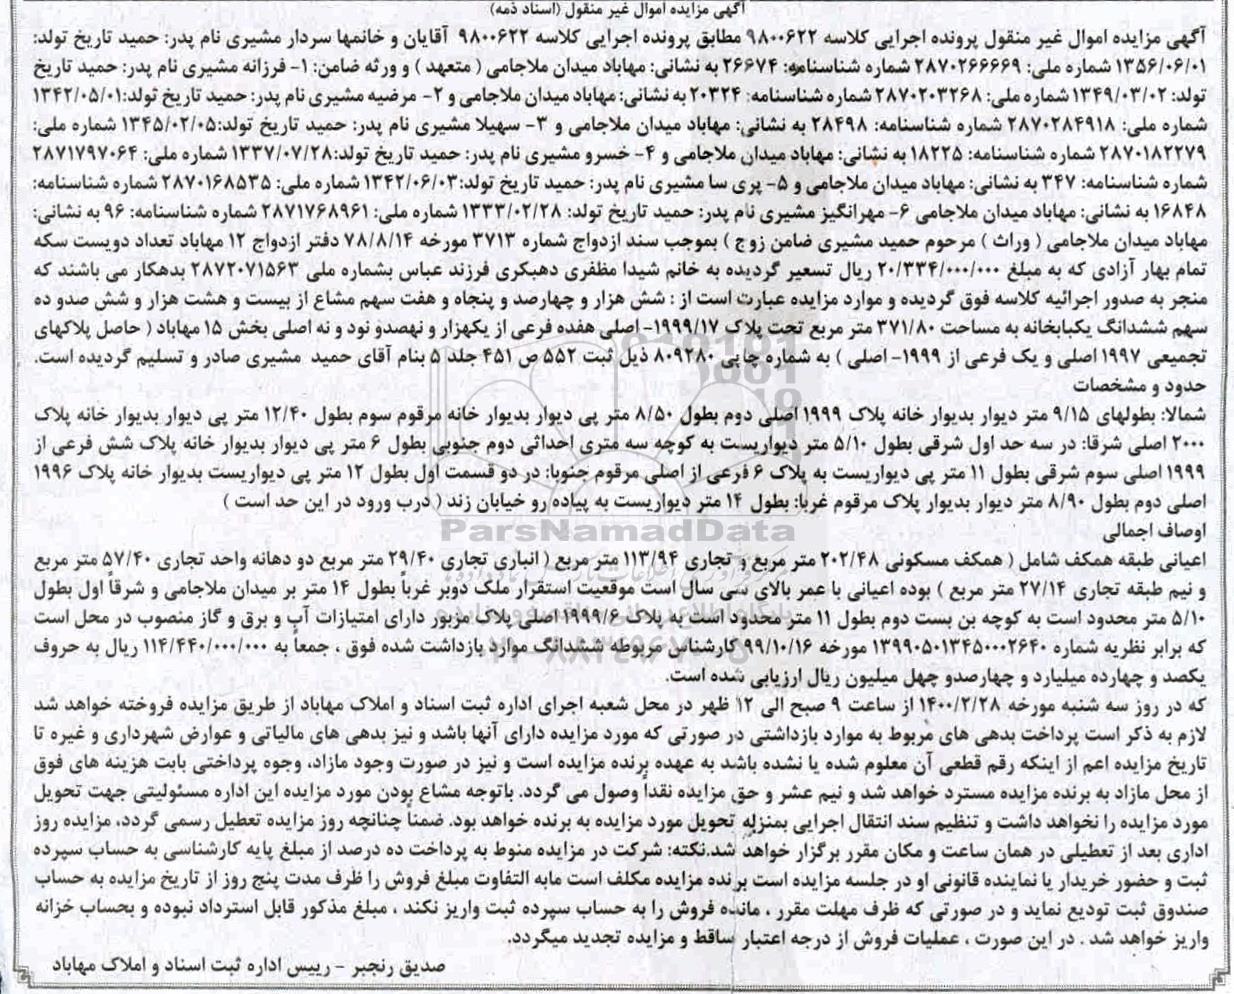 آگهی مزایده اموال غیر منقول (اسناد ذمه)
آگهی مزایده اموال غیر منقول پرونده اجرایی کلاسه ۹۸۰۰۶۲۲ مطابق پرونده اجرایی کلاسه ۹۸۰۰۶۲۲ آقایان و خانمها سردار مشیری نام پدر: حمید تاریخ تولد:
۱۳۵۶/۰۶/۰۱ شماره ملی: ۲۸۷۰۲۶۶۶۶۹ شماره شناسنامه: ۲۶۶۷۴ به نشانی: مهاباد میدان ملاجامی ( متعهد ) و ورثه ضامن: ۱- فرزانه مشیری نام پدر: حمید تاریخ
تولد: ۱۳۴۹/۰۳/۰۲ شماره ملی: ۲۸۷۰۲۰۳۲۶۸ شماره شناسنامه: ۲۰۳۲۴ به نشانی: مهاباد میدان ملاجامی و ۲- مرضیه مشیری نام پدر: حمید تاریخ تولد:۱۳۴۲/۰۵/۰۱
شماره ملی: ۲۸۷۰۲۸۴۹۱۸ شماره شناسنامه: ۲۸۴۹۸ به نشانی: مهاباد میدان ملاجامی و ۳- سهیلا مشیری نام پدر: حمید تاریخ تولد:۱۳۴۵/۰۲/۰۵ شماره ملی:
۲۸۷۰۱۸۲۲۷۹ شماره شناسنامه: ۱۸۲۲۵ به نشانی: مهاباد میدان ملاجامی و ۴- خسرو مشیری نام پدر: حمید تاریخ تولد:۱۳۳۷/۰۷/۲۸ شماره ملی: ۲۸۷۱۷۹۷۰۶۴
شماره شناسنامه: ۳۴۷ به نشانی: مهاباد میدان ملاجامی و ۵- پری سا مشیری نام پدر: حمید تاریخ تولد:۱۳۴۲/۰۶/۰۳ شماره ملی: ۲۸۷۰۱۶۸۵۳۵ شماره شناسنامه:
۱۶۸۴۸ به نشانی: مهاباد میدان ملاجامی ۶- مهرانگیز مشیری نام پدر: حمید تاریخ تولد: ۱۳۳۳/۰۲/۲۸ شماره ملی: ۲۸۷۱۷۶۸۹۶۱ شماره شناسنامه: ۹۶ به نشانی:
مهاباد میدان ملاجامی ( وراث ) مرحوم حمید مشیری ضامن زوج ) بموجب سند ازدواج شماره ۳۷۱۳ مورخه ۷۸/۸/۱۴ دفتر ازدواج ۱۲ مهاباد تعداد دویست سکه
تمام بهار آزادی که به مبلغ ۲۰/۳۳۴/۰۰۰/۰۰۰ ریال تسعیر گردیده به خانم شیدا مظفری دهبکری فرزند عباس بشماره ملی ۲۸۷۲۰۷۱۵۶۳ بدهکار می باشند که
منجر به صدور اجرائیه کلاسه فوق گردیده و موارد مزایده عبارت است از : شش هزار و چهارصد و پنجاه و هفت سهم مشاع از بیست و هشت هزار و شش صدو ده
سهم ششدانگ یکبابخانه به مساحت ۳۷۱/۸۰ متر مربع تحت پلاک ۱۹۹۹/۱۷- اصلی هفده فرعی از یکهزار و نهصدو نود و نه اصلی بخش ۱۵ مهاباد ( حاصل پلاکهای
تجمیعی ۱۹۹۷ اصلی و یک فرعی از ۱۹۹۹- اصلی ) به شماره چاپی ۸۰۹۲۸۰ ذیل ثبت ۵۵۲ ص ۴۵۱ جلد ۵ بنام آقای حمید مشیری صادر و تسلیم گردیده است.
حدود و مشخصات
شمالا: بطولهای ۹/۱۵ متر دیوار بدیوار خانه پلاک ۱۹۹۹ اصلی دوم بطول ۸/۵۰ متر پی دیوار بدیوار خانه مرقوم سوم بطول ۱۲/۴۰ متر پی دیوار بدیوار خانه پلاک
۲۰۰۰ اصلی شرقا: در سه حد اول شرقی بطول ۵/۱۰ متر دیواریست به کوچه سه متری احداثی دوم جنوبی بطول ۶ متر پی دیوار بدیوار خانه پلاک شش فرعی از
۱۹۹۹ اصلی سوم شرقی بطول ۱۱ متر پی دیواریست به پلاک ۶ فرعی از اصلی مرقوم جنوبا: در دو قسمت اول بطول ۱۲ متر پی دیواریست بدیوار خانه پلاک ۱۹۹۶
اصلی دوم بطول ۸/۹۰ متر دیوار بدیوار پلاک مرقوم غربا: بطول ۱۴ متر دیواریست به پیاده رو خیابان زند ( درب ورود در این حد است )
ParsNamadData
اوصاف اجمالی
اعیانی طبقه همکف شامل ( همکف مسکونی ۲۰۲/۴۸ متر مربع و تجاری ۱۱۳/۹۴ متر مربع ( انباری تجاری ۲۹/۴۰ متر مربع دو دهانه واحد تجاری ۵۷/۴۰ متر مربع
و نیم طبقه تجاری ۲۷/۱۴ متر مربع ) بوده اعیانی با عمر بالای سی سال است موقعیت استقرار ملک دوبر غرباً بطول ۱۴ متر بر میدان ملاجامی و شرقاً اول بطول
۵/۱۰ متر محدود است به کوچه بن بست دوم بطول ۱۱ متر محدود است به پلاک ۱۹۹۹/۶ اصلی پلاک مزبور دارای امتیازات آب و برق و گاز منصوب در محل است
که برابر نظریه شماره ۱۳۹۹۰۵۰۱۳۴۵۰۰۰۲۶۴۰ مورخه ۹۹/۱۰/۱۶ کارشناس مربوطه ششدانگ موارد بازداشت شده فوق ، جمعاً به ۱۱۴/۴۴۰/۰۰۰/۰۰۰ ریال به حروف
یکصد و چهارده میلیارد و چهارصدو چهل میلیون ریال ارزیابی شده است.
که در روز سه شنبه مورخه ۱۴۰۰/۲/۲۸ از ساعت ۹ صبح الی ۱۲ ظهر در محل شعبه اجرای اداره ثبت اسناد و املاک مهاباد از طریق مزایده فروخته خواهد شد
لازم به ذکر است پرداخت بدهی های مربوط به موارد بازداشتی در صورتی که مورد مزایده دارای آنها باشد و نیز بدهی های مالیاتی و عوارض شهرداری و غیره تا
تاریخ مزایده اعم از اینکه رقم قطعی آن معلوم شده یا نشده باشد به عهده برنده مزایده است و نیز در صورت وجود مازاد، وجوه پرداختی بابت هزینه های فوق
از محل مازاد به برنده مزایده مسترد خواهد شد و نیم عشر و حق مزایده نقداً وصول می گردد. باتوجه مشاع بودن مورد مزایده این اداره مسئولیتی جهت تحویل
مورد مزایده را نخواهد داشت و تنظیم سند انتقال اجرایی بمنزله تحویل مورد مزایده به برنده خواهد بود. ضمناً چنانچه روز مزایده تعطیل رسمی گردد، مزایده روز
اداری بعد از تعطیلی در همان ساعت و مکان مقرر برگزار خواهد شد.نکته: شرکت در مزایده منوط به پرداخت ده درصد از مبلغ پایه کارشناسی به حساب سپرده
ثبت و حضور خریدار یا نماینده قانونی او در جلسه مزایده است برنده مزایده مکلف است مابه التفاوت مبلغ فروش را ظرف مدت پنج روز از تاریخ مزایده به حساب
صندوق ثبت تودیع نماید و در صورتی که ظرف مهلت مقرر ، مانده فروش را به حساب سپرده ثبت واریز نکند ، مبلغ مذکور قابل استرداد نبوده و بحساب خزانه
واریز خواهد شد . در این صورت ، عملیات فروش از درجه اعتبار ساقط و مزایده تجدید میگردد.
صدیق رنجبر - رییس اداره ثبت اسناد و املاک مهاباد